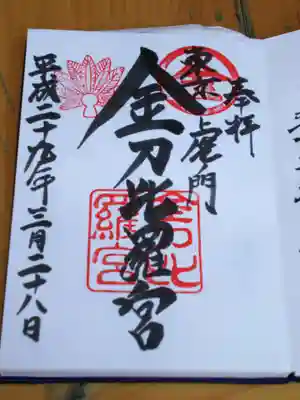 奉拝
東京
虎門
金刀比羅宮
羅宮
平成二十九年三月二十八日